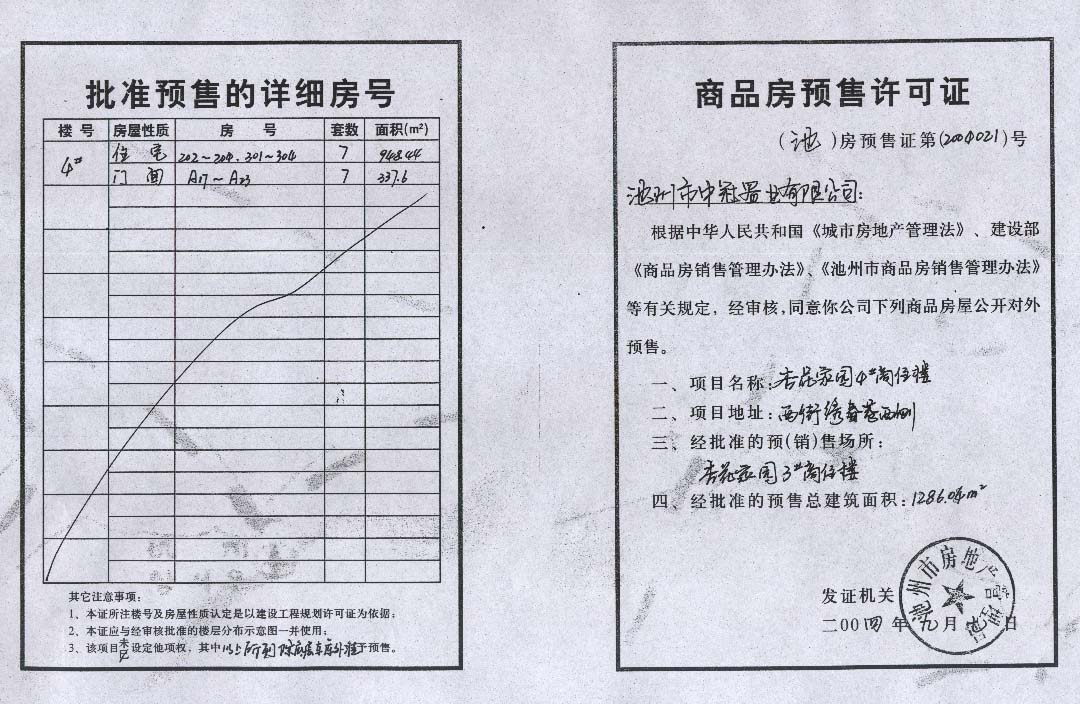 批准预售的详细房号
楼 号 房屋性质 房 号 套数 面积(m²)
4# 住宅 202~204.301~304 7 948.44
门面 A17~A23 7 337.6
其它注意事项:
1、本证所注楼号及房屋性质认定是以建设工程规划许可证为依据;
2、本证应与经审核批准的楼层分布示意图一并使用;
3、该项目未见设定他项权,其中以上所列除 准予预售。
商品房预售许可证
(池)房预售证第(2004021)号
池州市中冠置业有限公司:
根据中华人民共和国《城市房地产管理法》、建设部
《商品房销售管理办法》、《池州市商品房销售管理办法》
等有关规定,经审核,同意你公司下列商品房屋公开对外
预售。
一、项目名称:杏花家园4#商住楼
二、项目地址:西街绣春苑西侧
三、经批准的预(销)售场所:
杏花家园3#商住楼
四、经批准的预售总建筑面积:1286.04m²
发证机关
二00四年九月 日
池州市房地产管理局